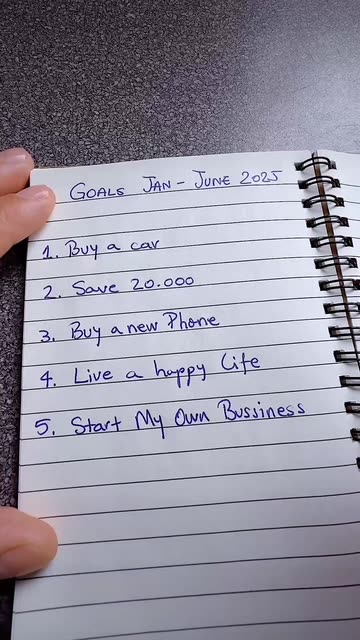 GOALS JAN - JUNE 2025
1. Buy a car
2. Save 20.000
3. Buy a new Phone
4. Live a happy life
5. Start My Own Bussiness